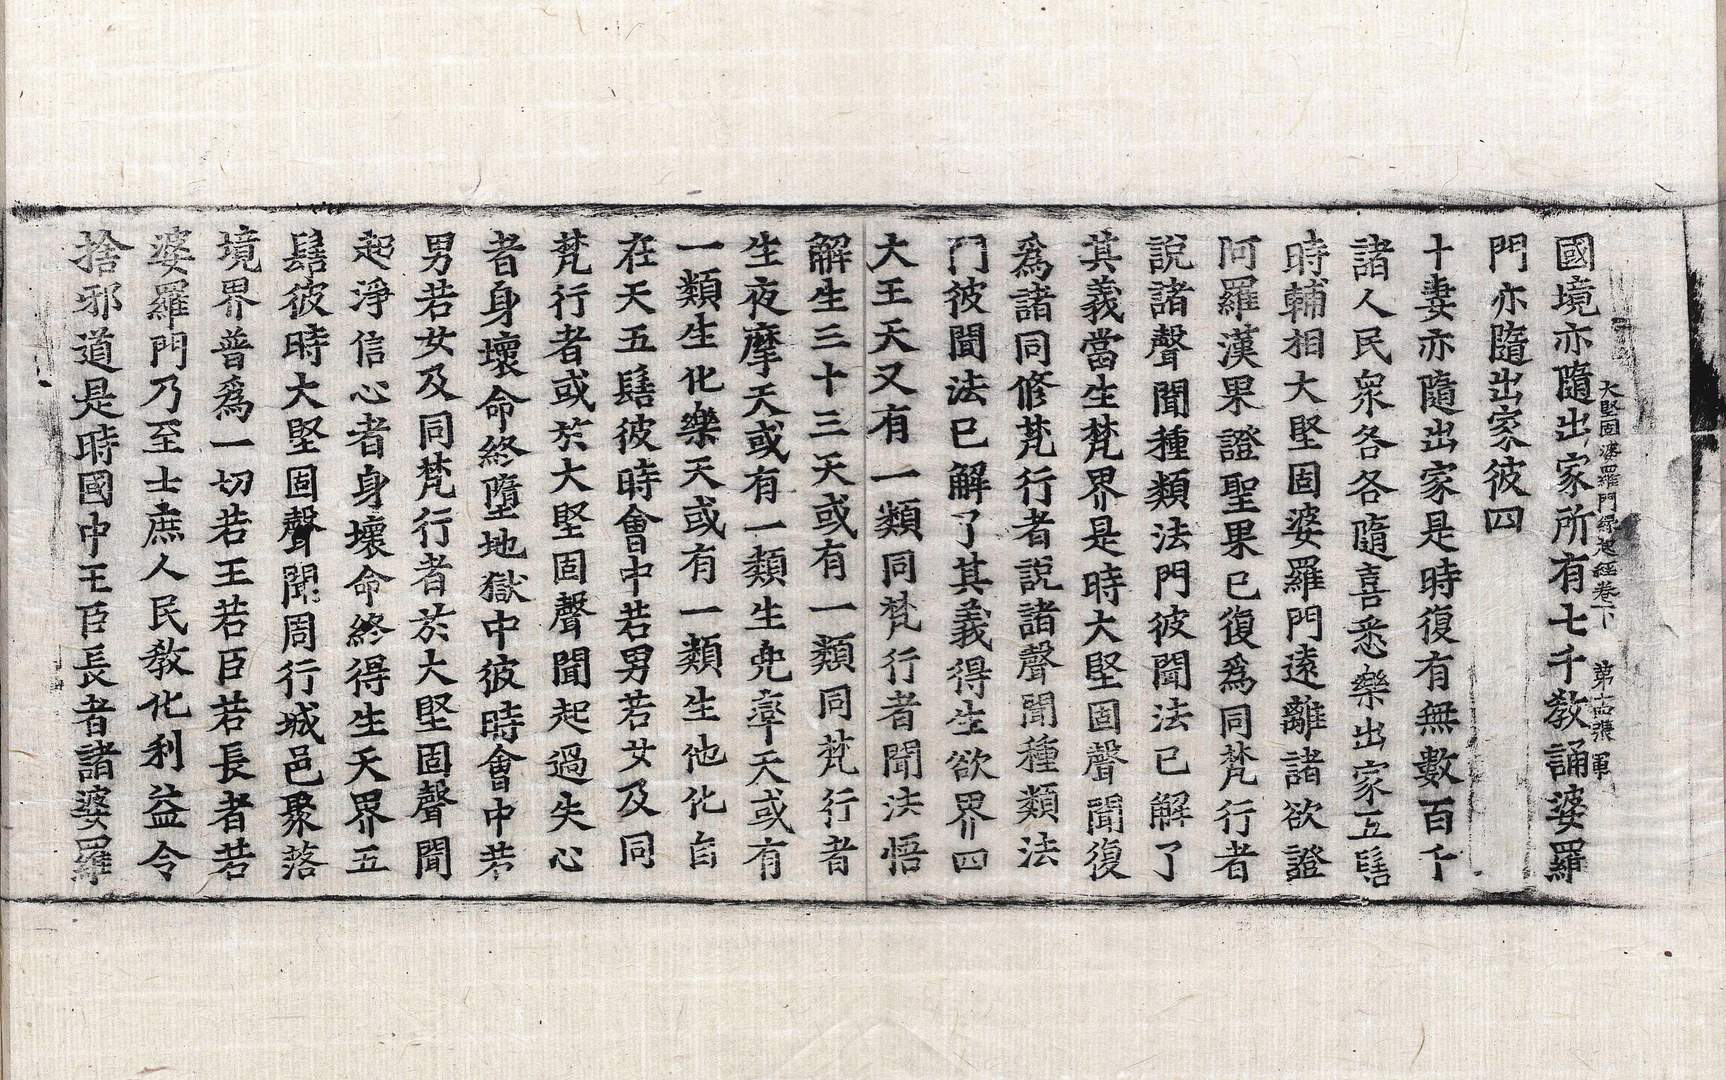 大堅固婆羅門緣起經卷下 第十張 軍
國境亦隨出家所有七千教誦婆羅
門亦隨出家彼四
十妻亦隨出家是時復有無數百千
諸人民衆各各隨喜悉樂出家五髻
時輔相大堅固婆羅門遠離諸欲證
阿羅漢果證聖果已復爲同梵行者
說諸聲聞種類法門彼聞法已解了
其義當生梵界是時大堅固聲聞復
爲諸同修梵行者說諸聲聞種類法
門彼聞法已解了其義得生欲界四
大王天又有一類同梵行者聞法悟
解生三十三天或有一類同梵行者
生夜摩天或有一類生兜率天或有
一類生化樂天或有一類生他化自
在天五髻彼時會中若男若女及同
梵行者或於大堅固聲聞起過失心
者身壞命終墮地獄中彼時會中若
男若女及同梵行者於大堅固聲聞
起淨信心者身壞命終得生天界五
髻彼時大堅固聲聞周行城邑聚落
境界普爲一切若王若臣若長者若
婆羅門乃至士庶人民教化利益令
捨邪道是時國中王臣長者諸婆羅